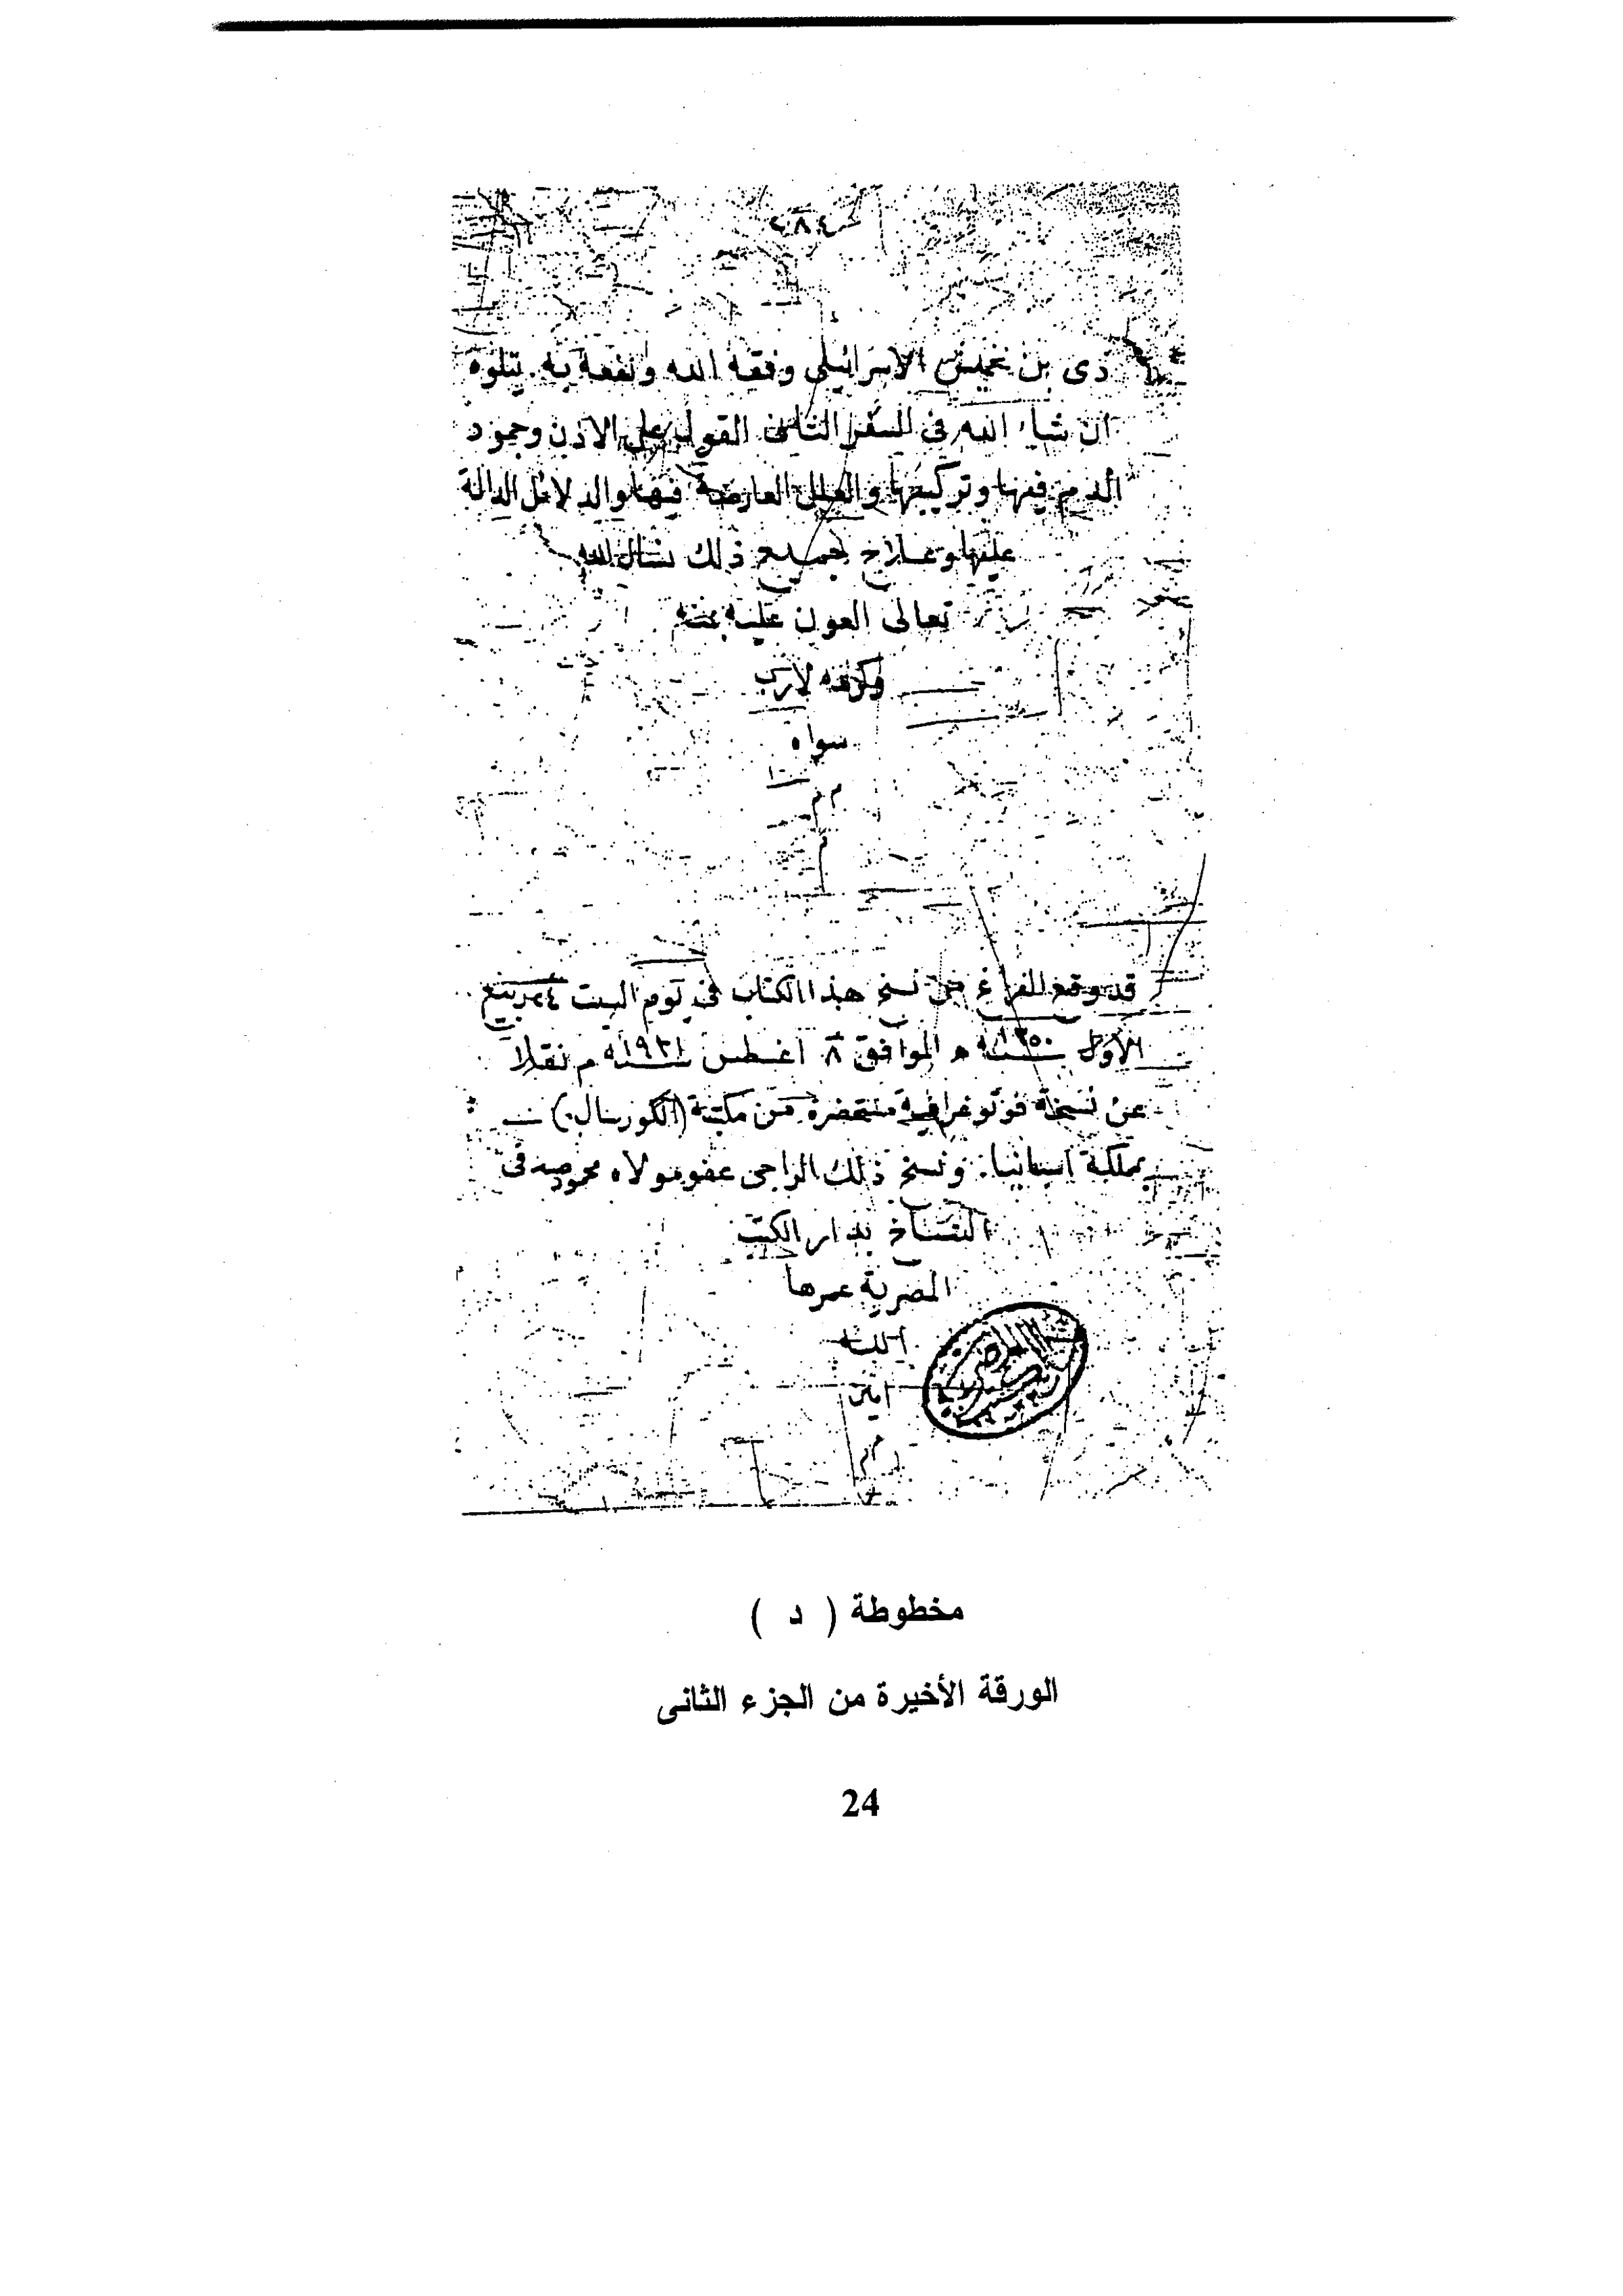 ٢٨٤
دى بن نخميس الاسرائيلى وفقه الله ونفعه به . يتلوه
ان شاء الله فى السفر الثانى القول على الاذن وجمود
الدم فيها وتركيبها والعلل العارضة فيها والدلائل الدالة
عليها وعلاج جميع ذلك نسأل الله
تعالى العون عليه بمنه
وكرمه لارب
سواه
م م
م
قد وقع الفراغ من نسخ هذا الكتاب فى يوم السبت ٢٤ ربيع
الأول سنة ١٣٥٠ ه الموافق ٨ اغسطس سنة ١٩٣١ م نقلا
عن نسخة فوتوغرافية مستحضرة من مكتبة (الكوريال)
بمملكة اسبانيا. ونسخ ذلك الراجى عفو مولاه محمود صدقى
النساخ بدار الكتب
المصرية عمرها
الله
امين
م م
مخطوطة ( د )
الورقة الأخيرة من الجزء الثانى
24